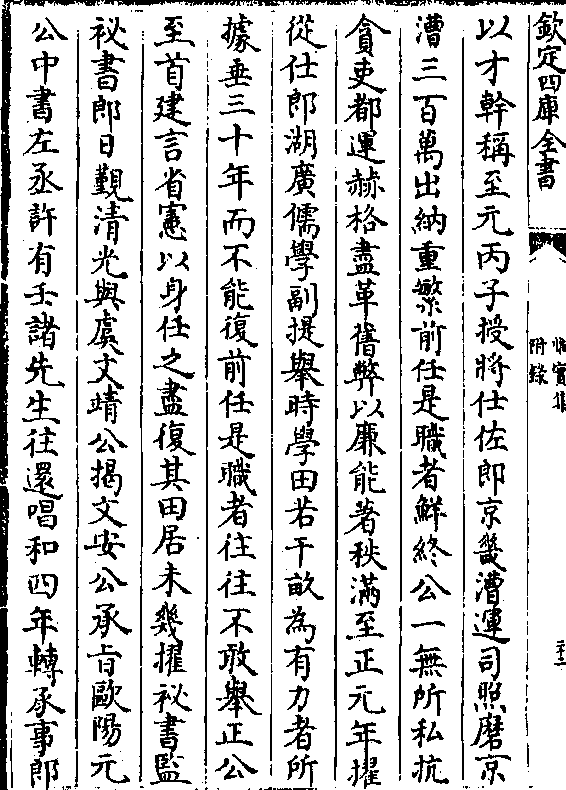 欽定四庫全書
惟實集
附錄
以才幹稱至元丙子授將仕佐郎京畿漕運司照磨京
漕三百萬出納重繁前任是職者鮮終公一無所私抗
貪吏都運赫格盡革舊弊以廉能著秩滿至正元年擢
從仕郎湖廣儒學副提舉時學田若干畝為有力者所
據垂三十年而不能復前任是職者往往不敢舉正公
至首建言省憲以身任之盡復其田居未幾擢祕書監
祕書郎日覲清光與虞文靖公揭文安公承旨歐陽元
公中書左丞許有壬諸先生往還唱和四年轉承事郎